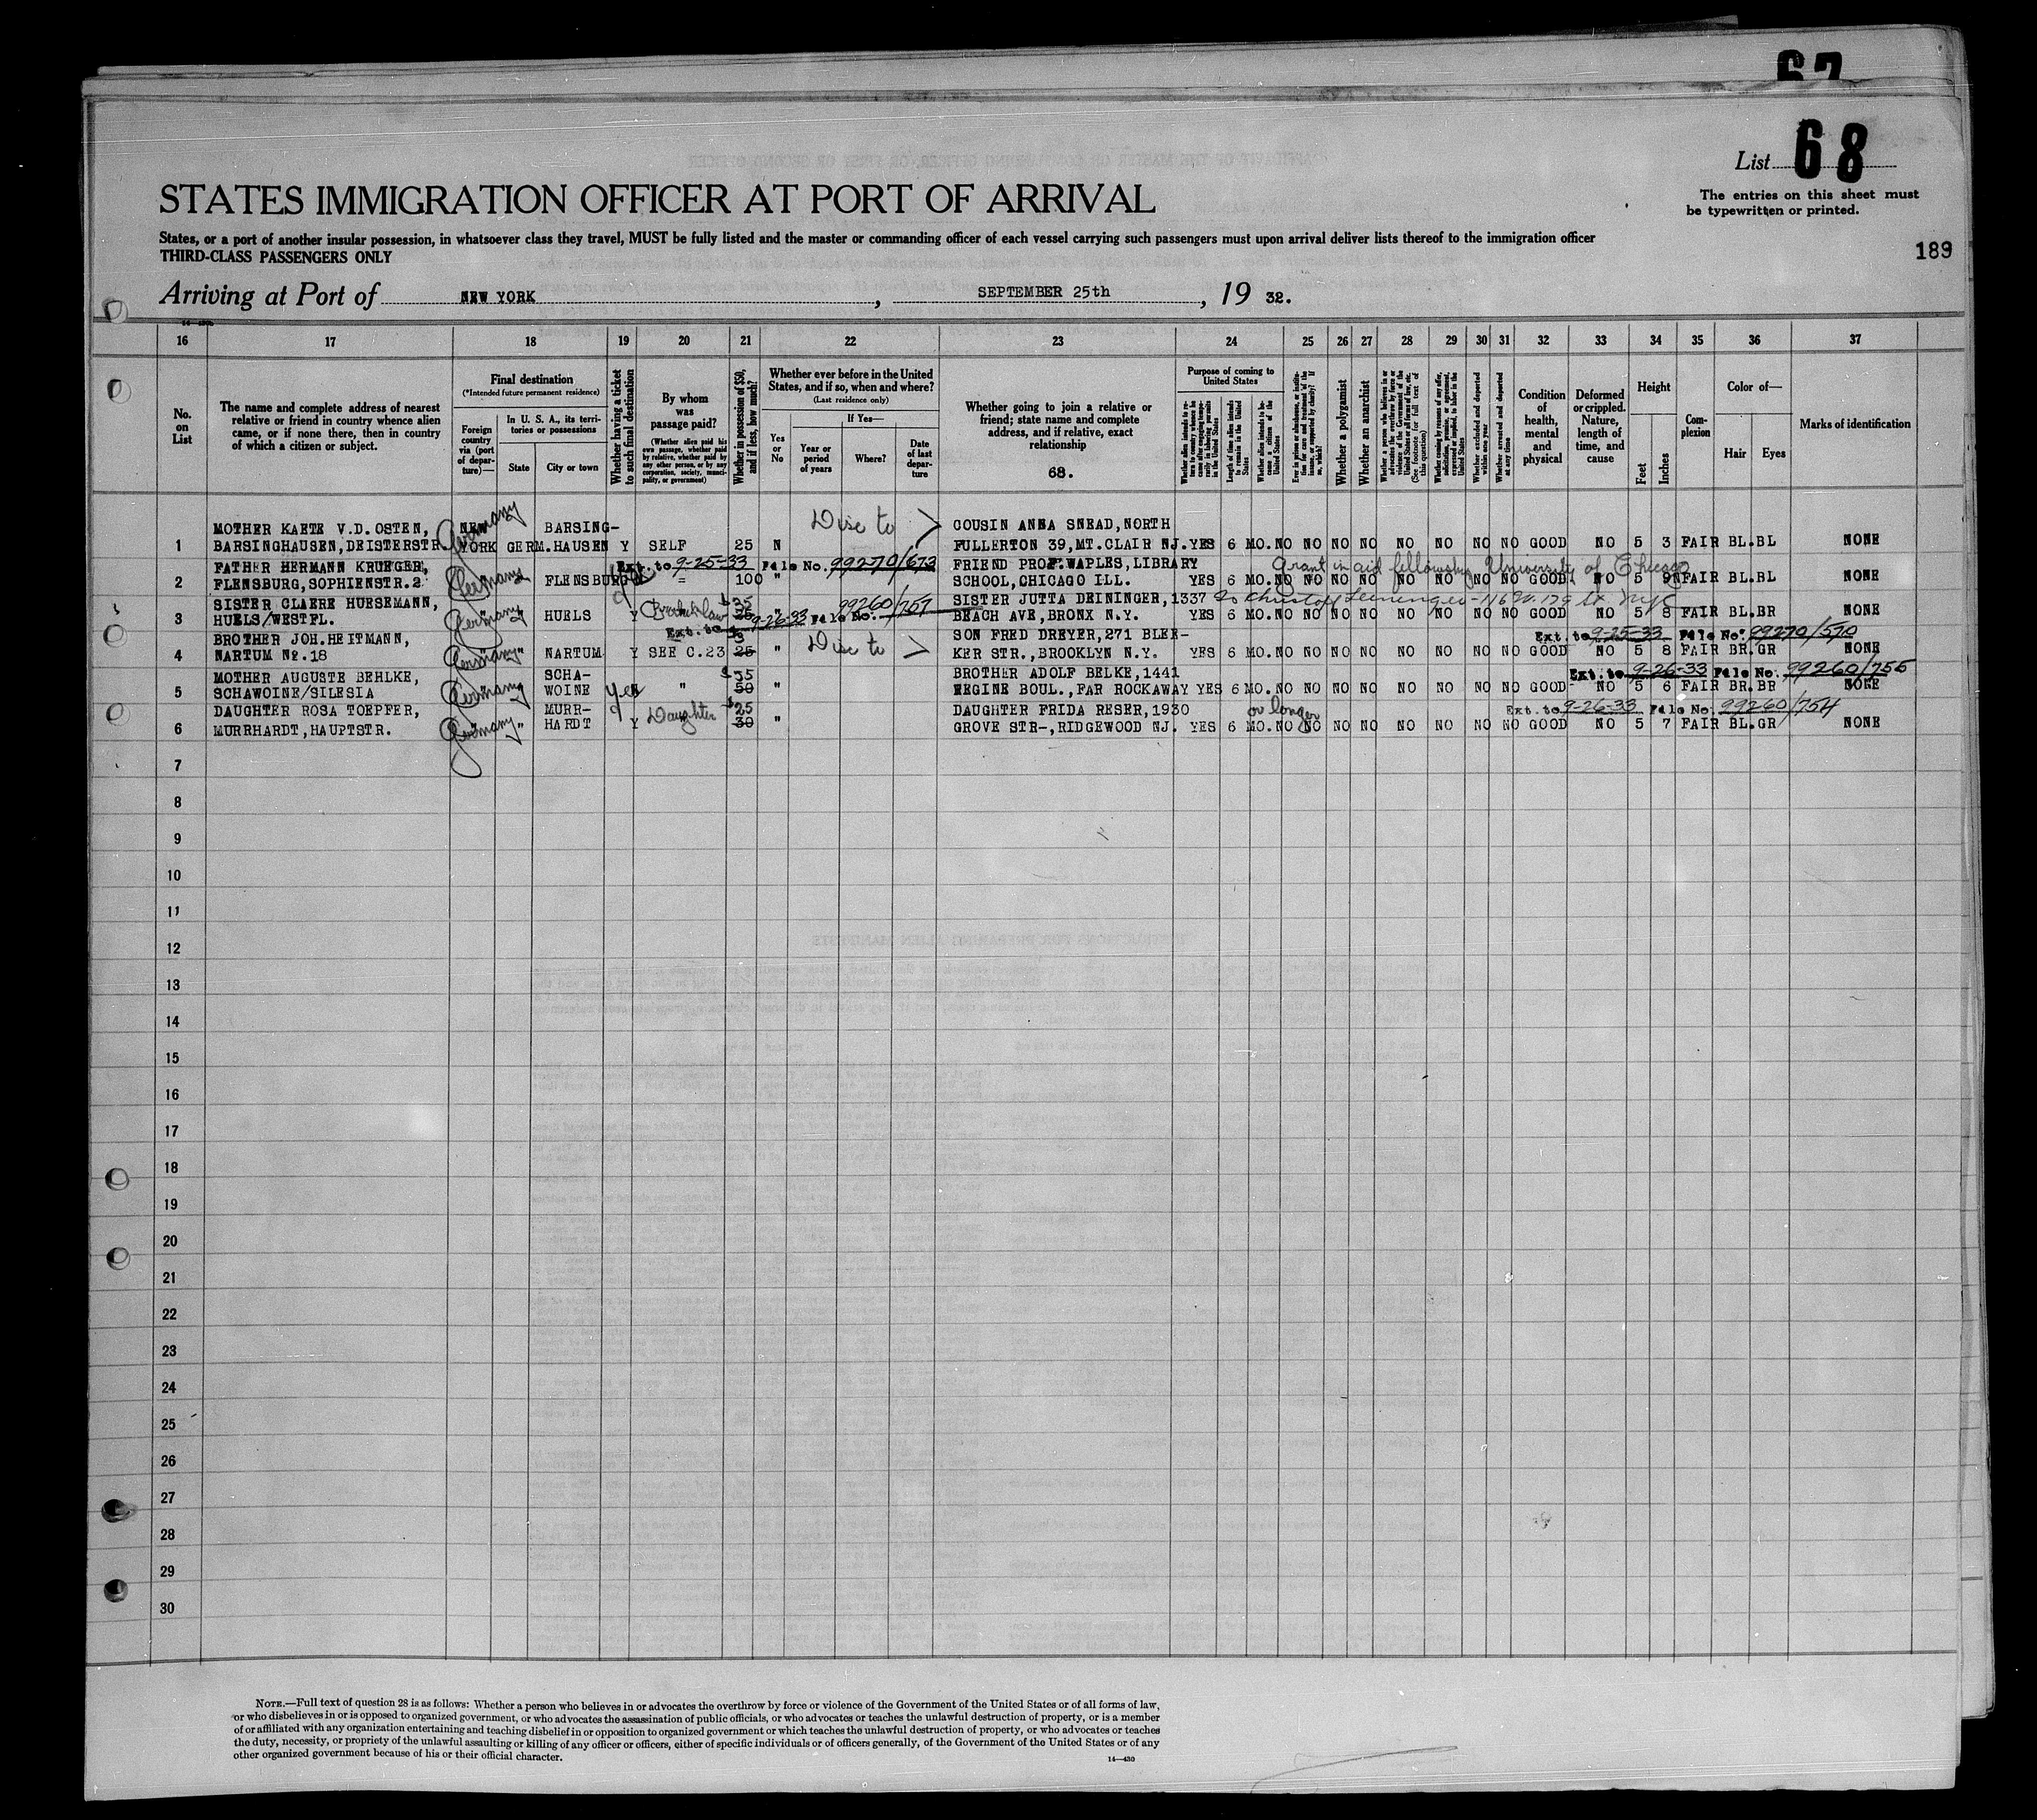 67
List 68
The entries on this sheet must
be typewritten or printed.
STATES IMMIGRATION OFFICER AT PORT OF ARRIVAL
States, or a port of another insular possession, in whatsoever class they travel, MUST be fully listed and the master or commanding officer of each vessel carrying such passengers must upon arrival deliver lists thereof to the immigration officer
THIRD-CLASS PASSENGERS ONLY
189
Arriving at Port of NEW YORK, SEPTEMBER 25th, 19 32.
16 17 18 19 20 21 22 23 24 25 26 27 28 29 30 31 32 33 34 35 36 37
No. on List
The name and complete address of nearest
relative or friend in country whence alien
came, or if none there, then in country
of which a citizen or subject.
Final destination
(*Intended future permanent residence)
Foreign country via (port of departure)—
In U. S. A., its territories or possessions
State
City or town
Whether having a ticket to such final destination
By whom was passage paid?
(Whether alien paid his own passage, whether paid by relative, whether paid by any other person, or by any corporation, society, municipality, or government)
Whether in possession of $50, and if less, how much?
Whether ever before in the United
States, and if so, when and where?
(Last residence only)
Yes or No
If Yes—
Year or period of years
Where?
Date of last departure
Whether going to join a relative or
friend; state name and complete
address, and if relative, exact
relationship
68.
Purpose of coming to United States
Whether alien intends to return to country whence he came after engaging temporarily in laboring pursuits in the United States
Length of time alien intends to remain in the United States
Whether alien intends to become a citizen of the United States
Ever in prison or almshouse, or institution for care and treatment of the insane, or supported by charity? If so, which?
Whether a polygamist
Whether an anarchist
Whether a person who believes in or advocates the overthrow by force or violence of the Government of the United States or all forms of law, etc. (See footnote for full text of this question)
Whether coming by reasons of any offer, solicitation, promise, or agreement, expressed or implied, to labor in the United States
Whether excluded and deported within one year
Whether arrested and deported at any time
Condition of health, mental and physical
Deformed or crippled. Nature, length of time, and cause
Height
Feet
Inches
Complexion
Color of—
Hair
Eyes
Marks of identification
MOTHER KAETE V.D. OSTEN, NEW Germany BARSING- Disc to COUSIN ANNA SNEAD, NORTH
1 BARSINGHAUSEN, DEISTERSTR. YORK GERM. HAUSEN Y SELF 25 N FULLERTON 39, MT. CLAIR NJ. YES 6 MO. NO NO NO NO NO NO NO NO GOOD NO 5 3 FAIR BL. BL NONE
FATHER HERMANN KRUEGER, Germany Ext. to 9-25-33 File No. 99270/673 FRIEND PROF. WAPLES, LIBRARY Grant in aid fellowship University of Chicago
2 FLENSBURG, SOPHIENSTR. 2 FLENSBURG " 100 " SCHOOL, CHICAGO ILL. YES 6 MO. NO NO NO NO NO NO NO NO GOOD NO 5 9 FAIR BL. BL NONE
SISTER CLAERE HUESEMANN, Germany $35 99260/757 SISTER JUTTA DEININGER, 1337
3 HUELS/WESTFL. HUELS Y 25 " BEACH AVE, BRONX N.Y. YES 6 MO. NO NO NO NO NO NO NO NO GOOD NO 5 8 FAIR BL. BR NONE
Ext. to 9-26-33 File No.
BROTHER JOH. HEITMANN, Germany Disc to SON FRED DREYER, 271 BLEE- Ext. to 9-25-33 File No. 99270/570
4 NARTUM No. 18 " NARTUM Y SEE C.23 25 " KER STR., BROOKLYN N.Y. YES 6 MO. NO NO NO NO NO NO NO NO GOOD NO 5 8 FAIR BR. GR NONE
MOTHER AUGUSTE BEHLKE, Germany SCHA- $35 BROTHER ADOLF BELKE, 1441 Ext. to 9-26-33 File No. 99260/755
5 SCHAWOINE/SILESIA WOINE yes " 50 " REGINE BOUL., FAR ROCKAWAY YES 6 MO. NO NO NO NO NO NO NO NO GOOD NO 5 6 FAIR BR. BR NONE
DAUGHTER ROSA TOEPFER, Germany MURR- Daughter $25 DAUGHTER FRIDA RESER, 1930 or longer Ext. to 9-26-33 File No. 99260/754
6 MURRHARDT, HAUPTSTR. " HARDT Y 30 " GROVE STR-, RIDGEWOOD NJ. YES 6 MO. NO NO NO NO NO NO NO NO GOOD NO 5 7 FAIR BL. GR NONE
7
8
9
10
11
12
13
14
15
16
17
18
19
20
21
22
23
24
25
26
27
28
29
30
NOTE.—Full text of question 28 is as follows: Whether a person who believes in or advocates the overthrow by force or violence of the Government of the United States or of all forms of law,
or who disbelieves in or is opposed to organized government, or who advocates the assassination of public officials, or who advocates or teaches the unlawful destruction of property, or is a member
of or affiliated with any organization entertaining and teaching disbelief in or opposition to organized government or which teaches the unlawful destruction of property, or who advocates or teaches
the duty, necessity, or propriety of the unlawful assaulting or killing of any officer or officers, either of specific individuals or of officers generally, of the Government of the United States or of any
other organized government because of his or their official character.
14—430